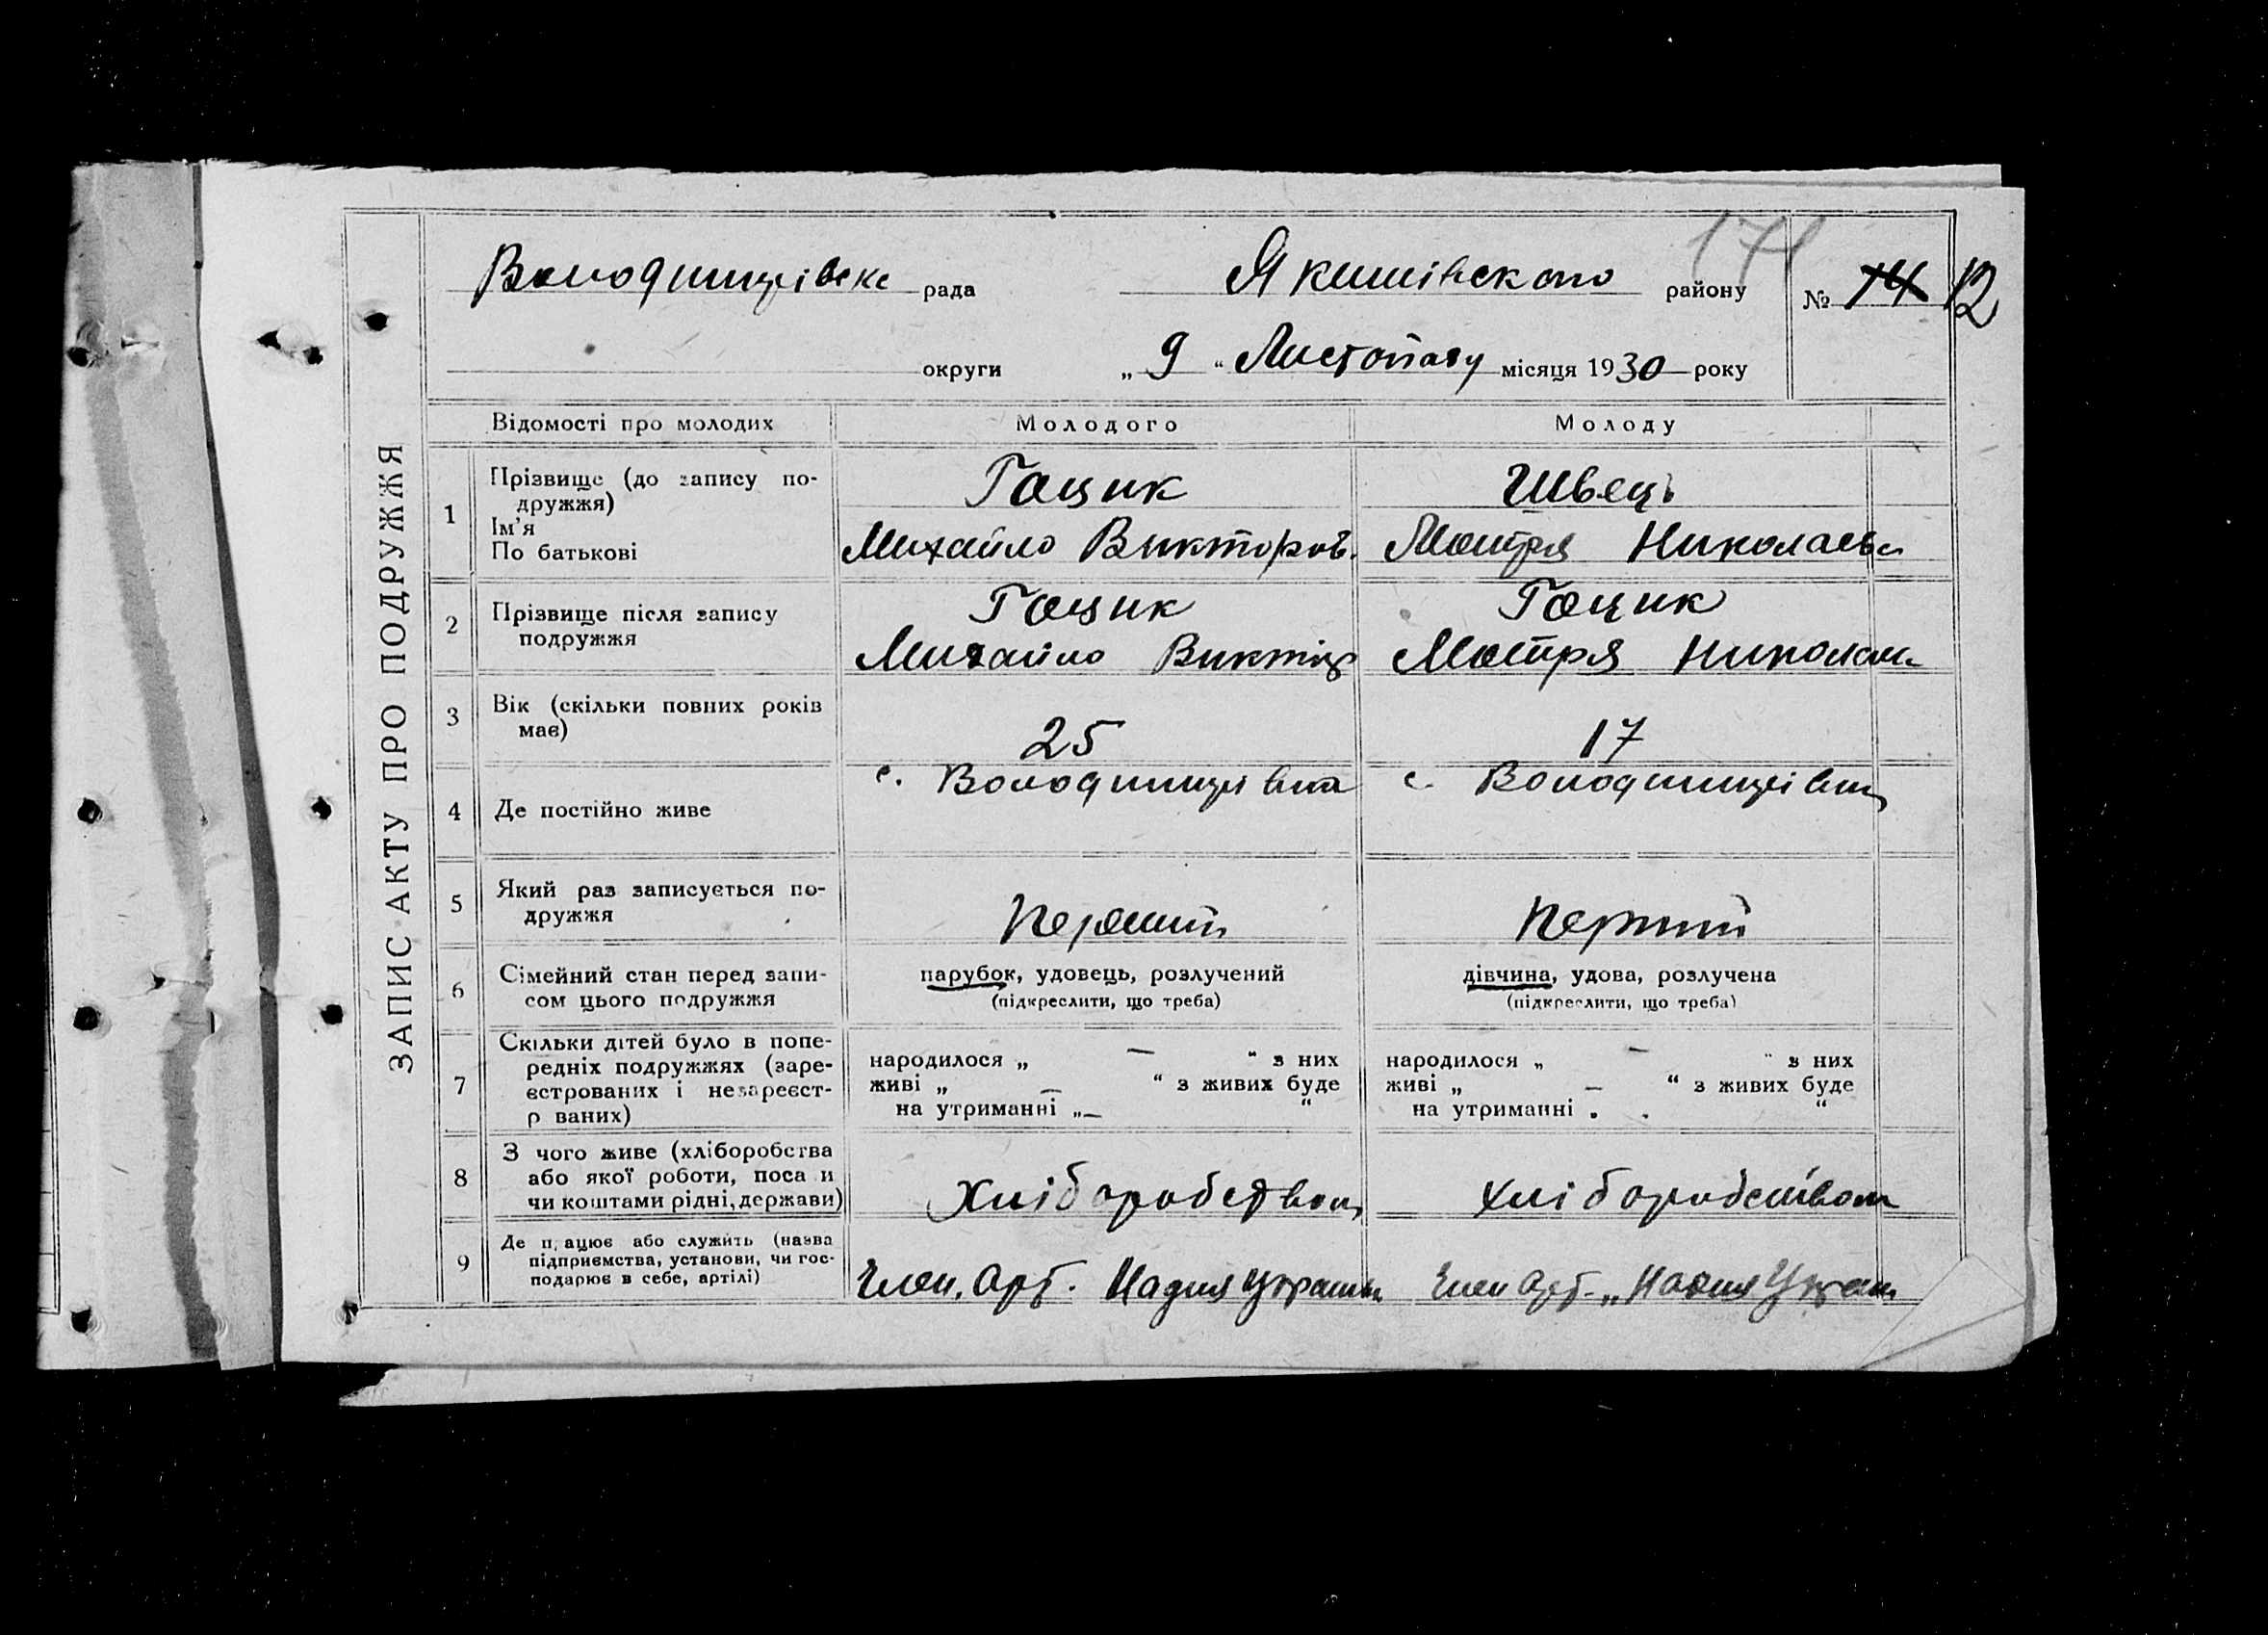 ЗАПИС АКТУ ПРО ПОДРУЖЖЯ
171
Володимирівска рада Якимівського району № 14 12
округи „ 9 “ Листопаду місяця 1930 року
Відомості про молодих Молодого Молоду
1 Прізвище (до запису по-
дружжя)
Ім’я
По батькові
Гацик Швець
Михайло Викторов. Мотря Николаевн
2 Прізвище після запису
подружжя
Гацик Гацик
Михайло Виктор Мотря Николаев
3 Вік (скільки повних років
має)
25 17
4 Де постійно живе
с. Володимирівка с. Володимирівка
5 Який раз записується по-
дружжя
Перший Перший
6 Сімейний стан перед запи-
сом цього подружжя
парубок, удовець, розлучений дівчина, удова, розлучена
(підкреслити, що треба) (підкреслити, що треба)
7 Скільки дітей було в попе-
редніх подружжях (заре-
єстрованих і незареєст-
р ваних)
народилося „ — “ з них народилося „ — “ з них
живі „ — “ з живих буде живі „ — “ з живих буде
на утриманні „— “ на утриманні „ “
8 З чого живе (хліборобства
або якої роботи, поса и
чи коштами рідні, держави)
Хліборобством Хліборобством
9 Де п ацює або служить (назва
підприємства, установи, чи гос-
подарює в себе, артілі)
Член. Арт. Надия Украини Член Арт. „Надия Украин